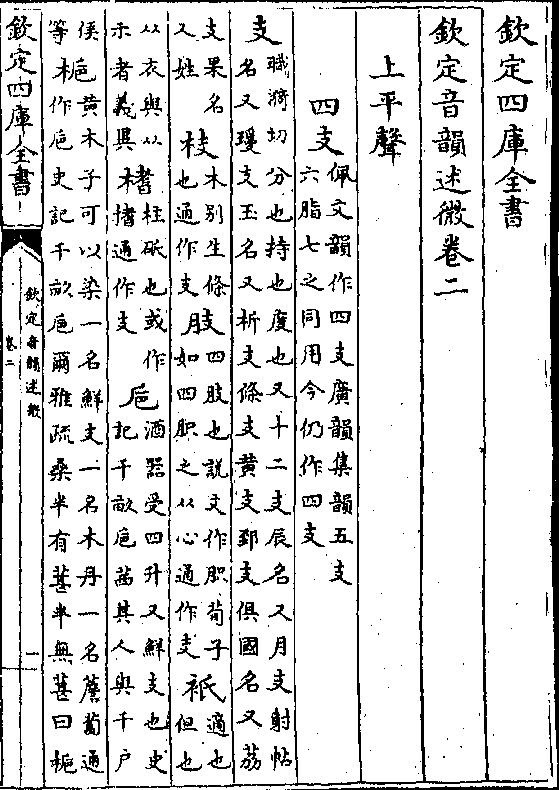 欽定四庫全書
欽定音韻述微卷二
上平聲
四支
佩文韻作四支廣韻集韻五支
六脂七之同用今仍作四支
支
職漪切分也持也度也又十二支辰名又月支射帖
名又瓊支玉名又析支條支黃支郅支俱國名又荔
支果名
又姓
枝
木別生條
也通作支
肢
四肢也説文作胑荀子
如四胑之从心通作支
衹
適也
但也
从衣與从
示者義異
榰
柱砥也或作
搘通作支
巵
酒器受四升又鮮支也史
記千畝巵茜其人與千户
侯
等
梔
黃木子可以染一名鮮支一名木丹一名薝蔔通
作巵史記千畝巵爾雅疏桑半有葚半無葚曰梔
欽定四庫全書
欽定音韻述微
卷二
一